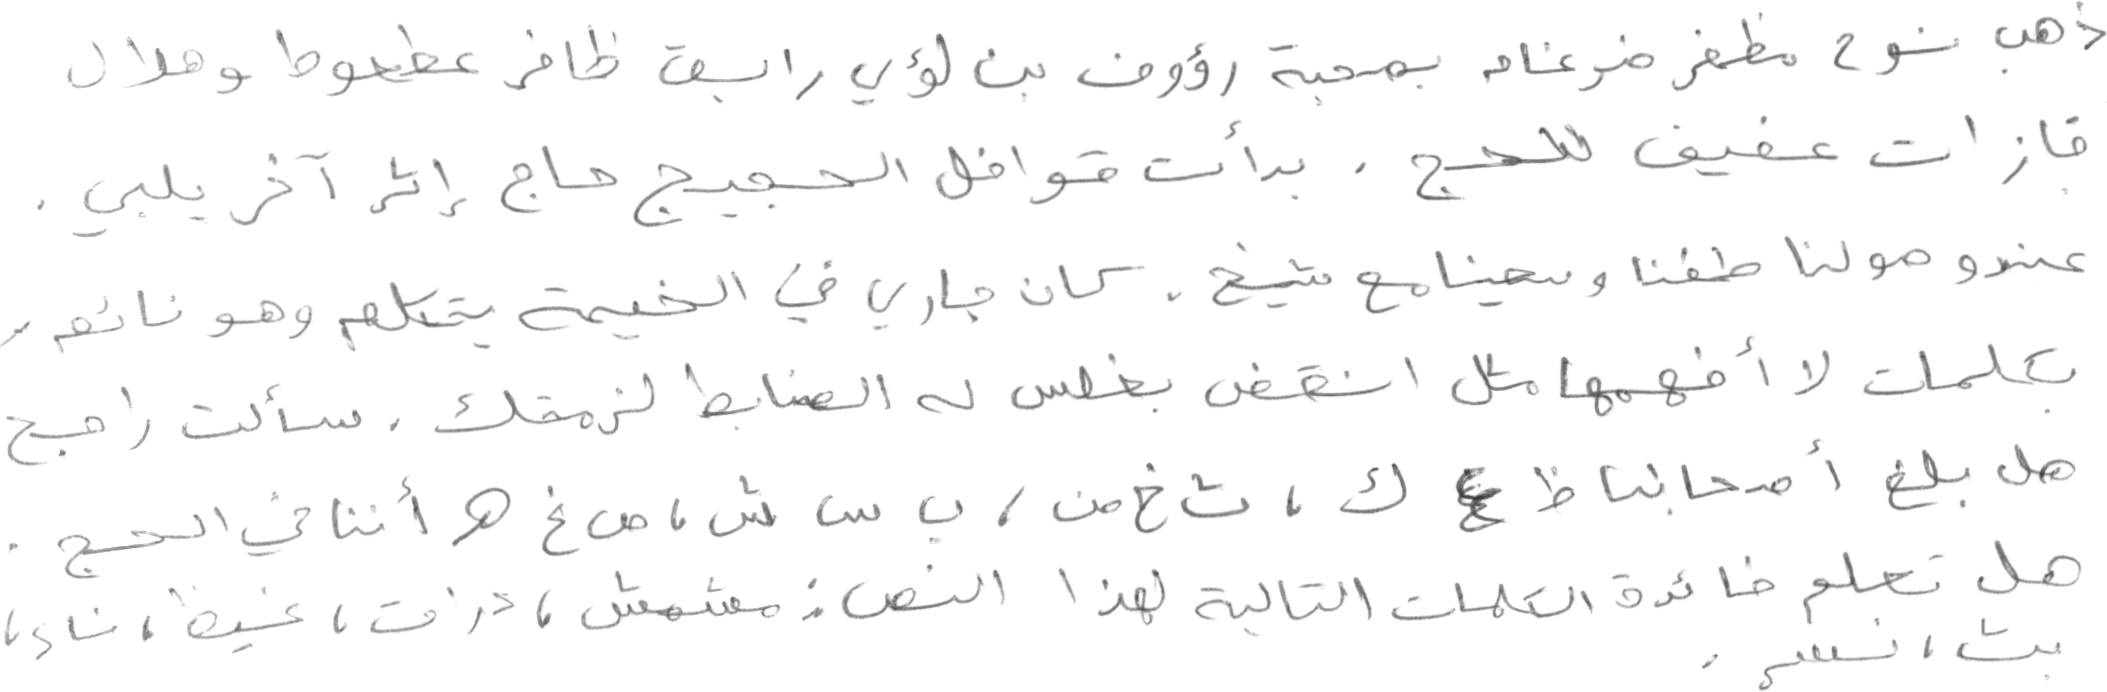 ذهب نوح مظفر ضرغام بصحبة رؤوف بن لؤي رابسق ظافر عطعوط وهلال
قازات عفيف للحج . بدأت قوافل الحجيج حاج إثر آخر يلبي .
عند وصولنا طفنا وسعينا مع شيخ . كان جاري في الخيمة يتكلم وهو نائم ،
بكلمات لا أفهمها مثل انقض بغلس له الضابط لزمتك . سألت راجح
هل بلغ أصحابنا ظ غ ك ، ث خ ص ، ب س ش ، ص غ ه أننا في الحج .
هل تعلم فائدة الكلمات التالية لهذا النص : مشمش ، ذرات ، غيظ ، نادِ ،
بث ، نسر .